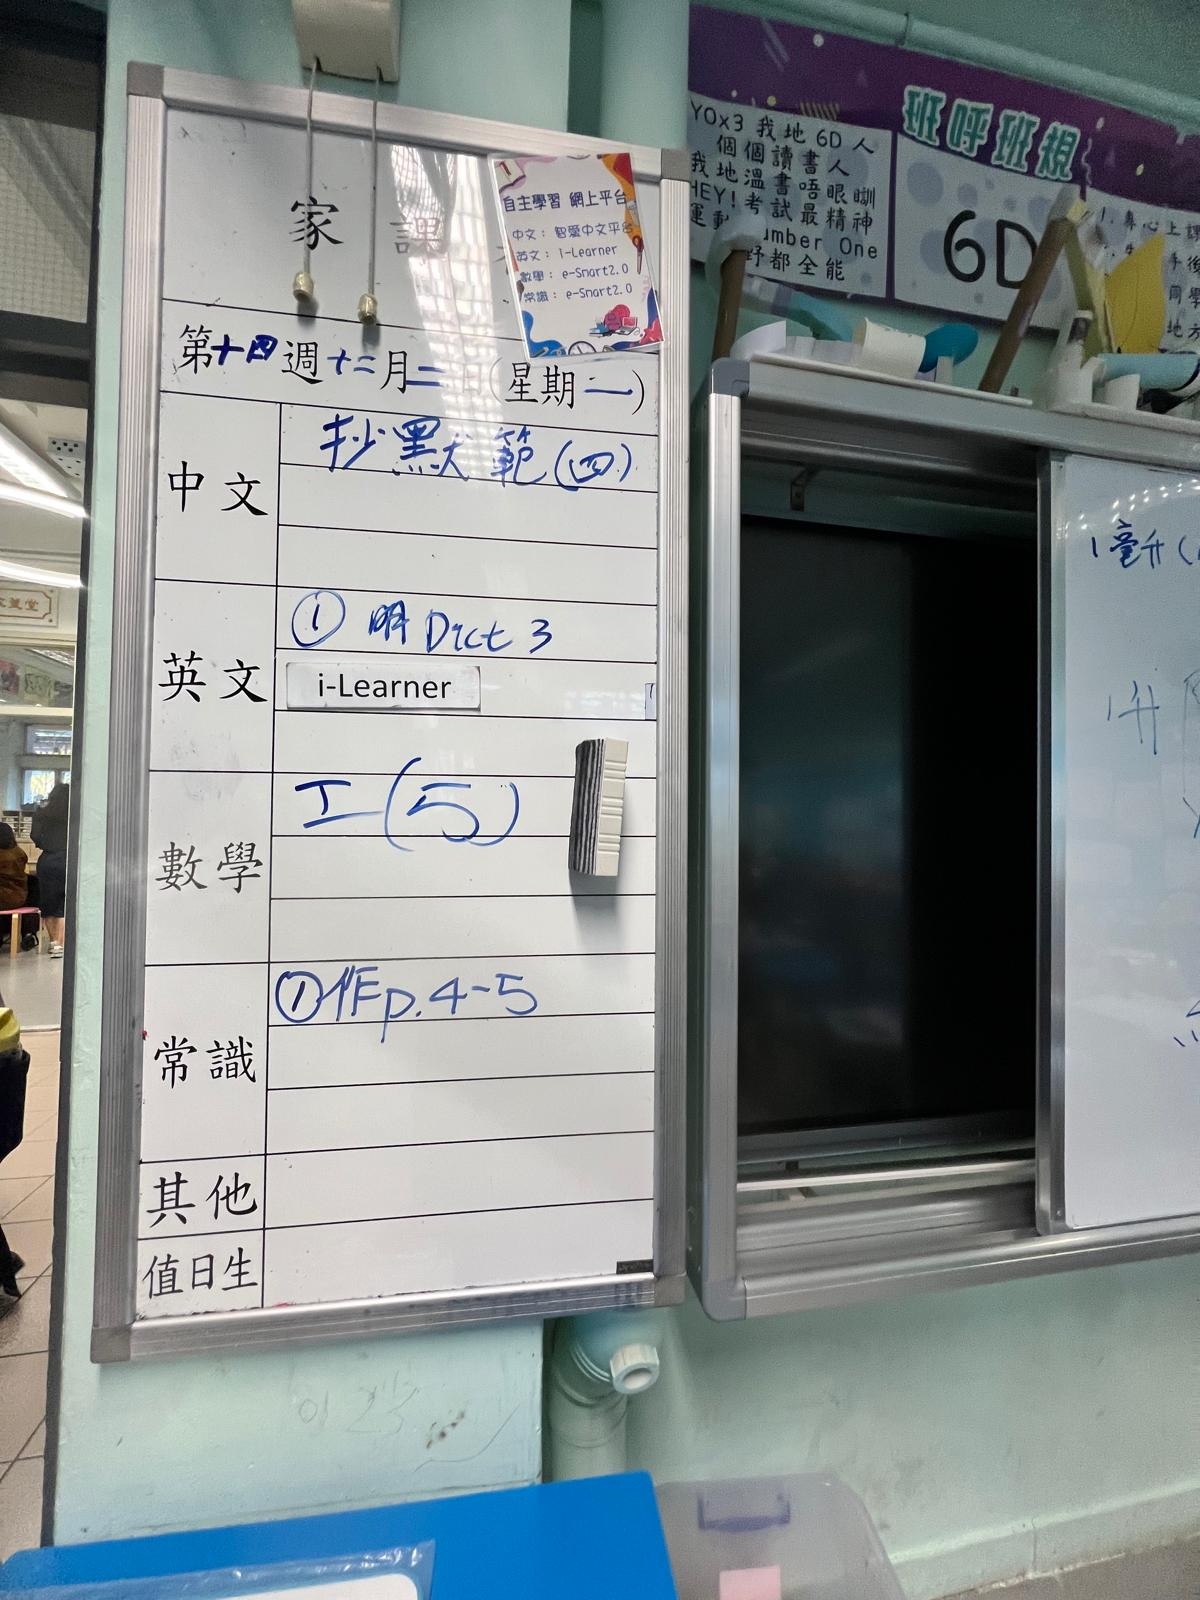 家課
自主學習 網上平台
中文： 智愛中文平台
英文： i-Learner
數學： e-Smart2.0
常識： e-Smart2.0
第十四週十二月二日(星期二)
中文
抄默範(四)
英文
① 明 Dict 3
i-Learner
數學
工(5)
常識
①作p.4-5
其他
值日生
班呼班規
YOx3 我地 6D 人
個個讀書人
我地溫書唔眼瞓
HEY!考試最精神
運動 Number One
好都全能
6D
1. 專心上課
1毫升(
1升